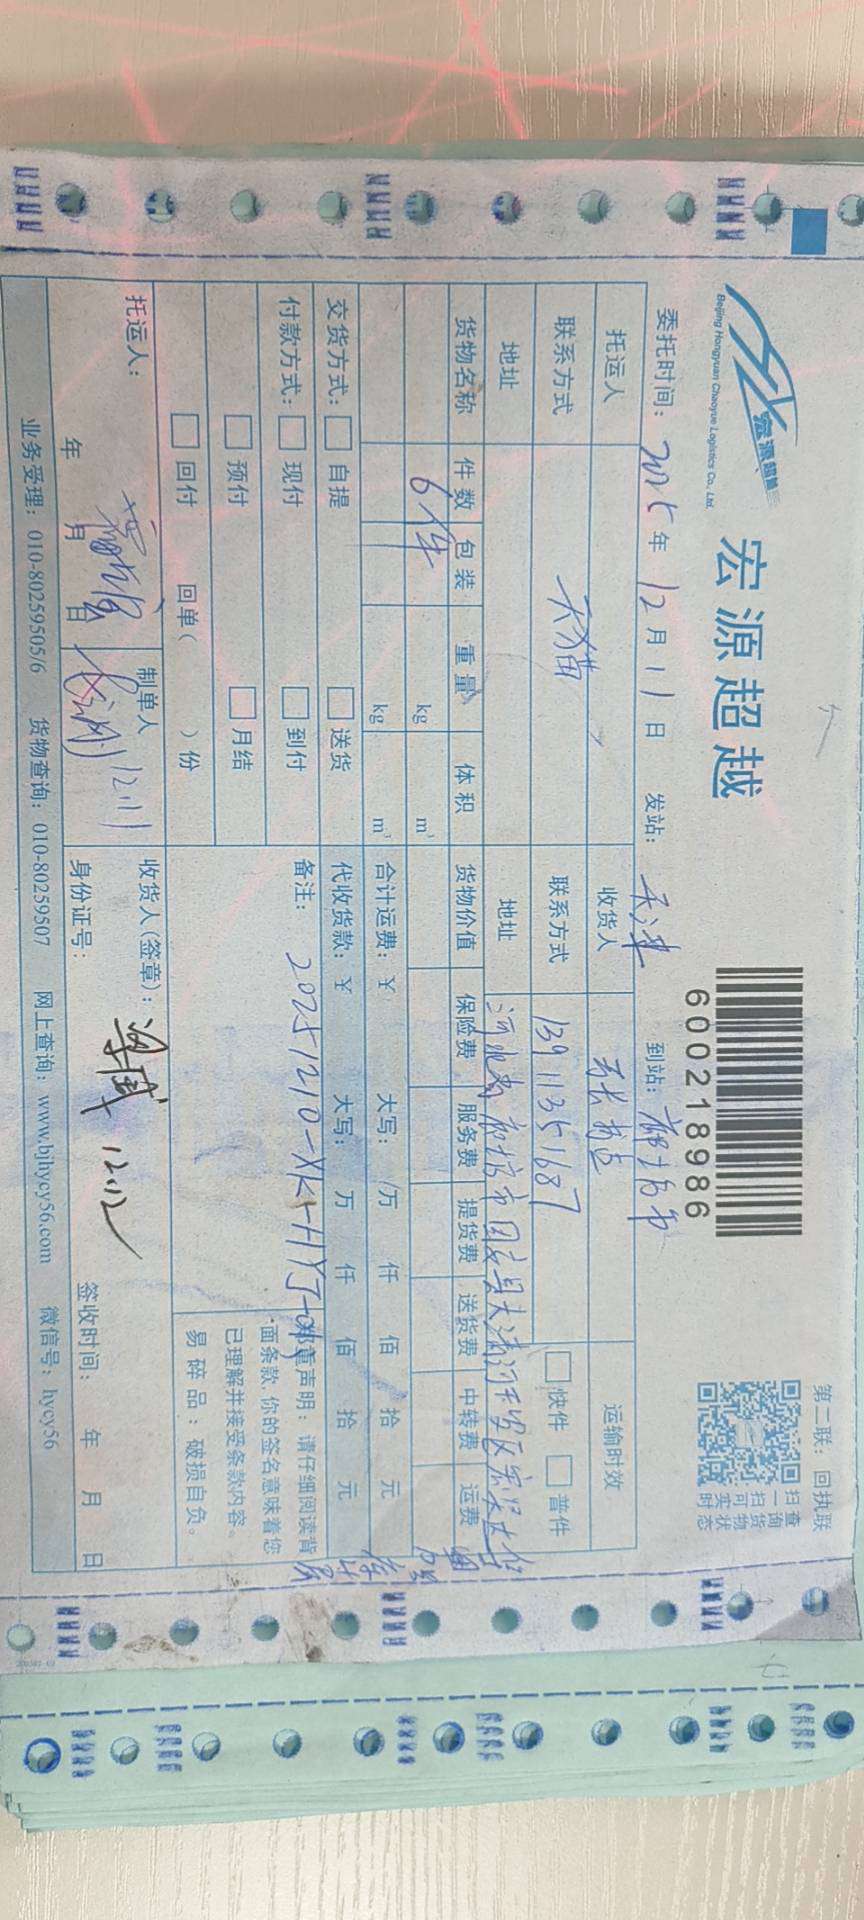 第二联：回执联
宏源超越
Beijing Hongyuan Chaoyue Logistics Co., Ltd.
宏源超越
600218986
扫一扫可实时
查询货物状态
委托时间：2025年12月11日 发站：天津 到站：廊坊市
托运人 收货人 运输时效
联系方式 天猫 联系方式 13911351687 快件 普件
地址 地址 河北省廊坊市固安县大清河开发区
货物名称 件数 包装 重量 体积 货物价值 保险费 服务费 提货费 送货费 中转费 运费
6件 kg m³
kg m³ 合计运费：¥ 大写： 万 仟 佰 拾 元
交货方式： 自提 送货 代收货款：¥ 大写： 万 仟 佰 拾 元
付款方式： 现付 到付 备注：20251210-XK-HYJ-01
预付 月结
回付 回单（ ）份
郑重声明：请仔细阅读背
面条款，你的签名意味着您
已理解并接受条款内容。
易碎品：破损自负。
托运人： 制单人 12.11 收货人(签章)： 12.12
年 月 日 身份证号： 签收时间： 年 月 日
业务受理：010-80259505/6 货物查询：010-80259507 网上查询：www.bjhycy56.com 微信号：hycy56